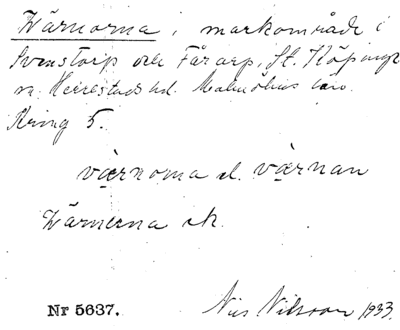 Wärnorna, markområde i
Svenstorp och Fårarp, St. Köpinge
sn. Herrestads hd. Malmöhus län.
Kring 5.
værnorna el. værnan
Wärnerna ek.
Nr 5637. Nils Nilsson 1933.